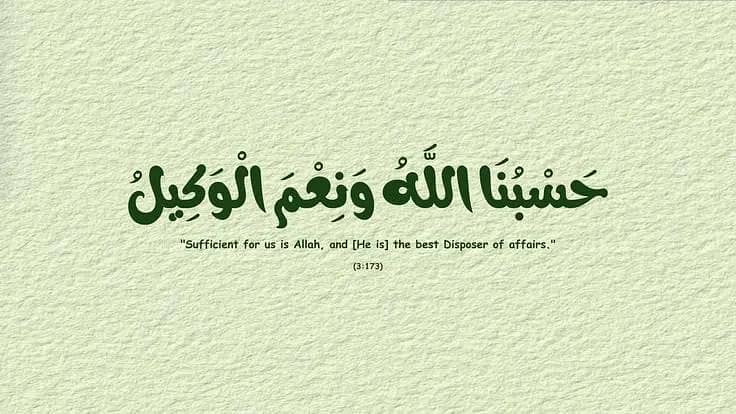 حَسْبُنَا اللَّهُ وَنِعْمَ الْوَكِيلُ
"Sufficient for us is Allah, and [He is] the best Disposer of affairs."
(3:173)